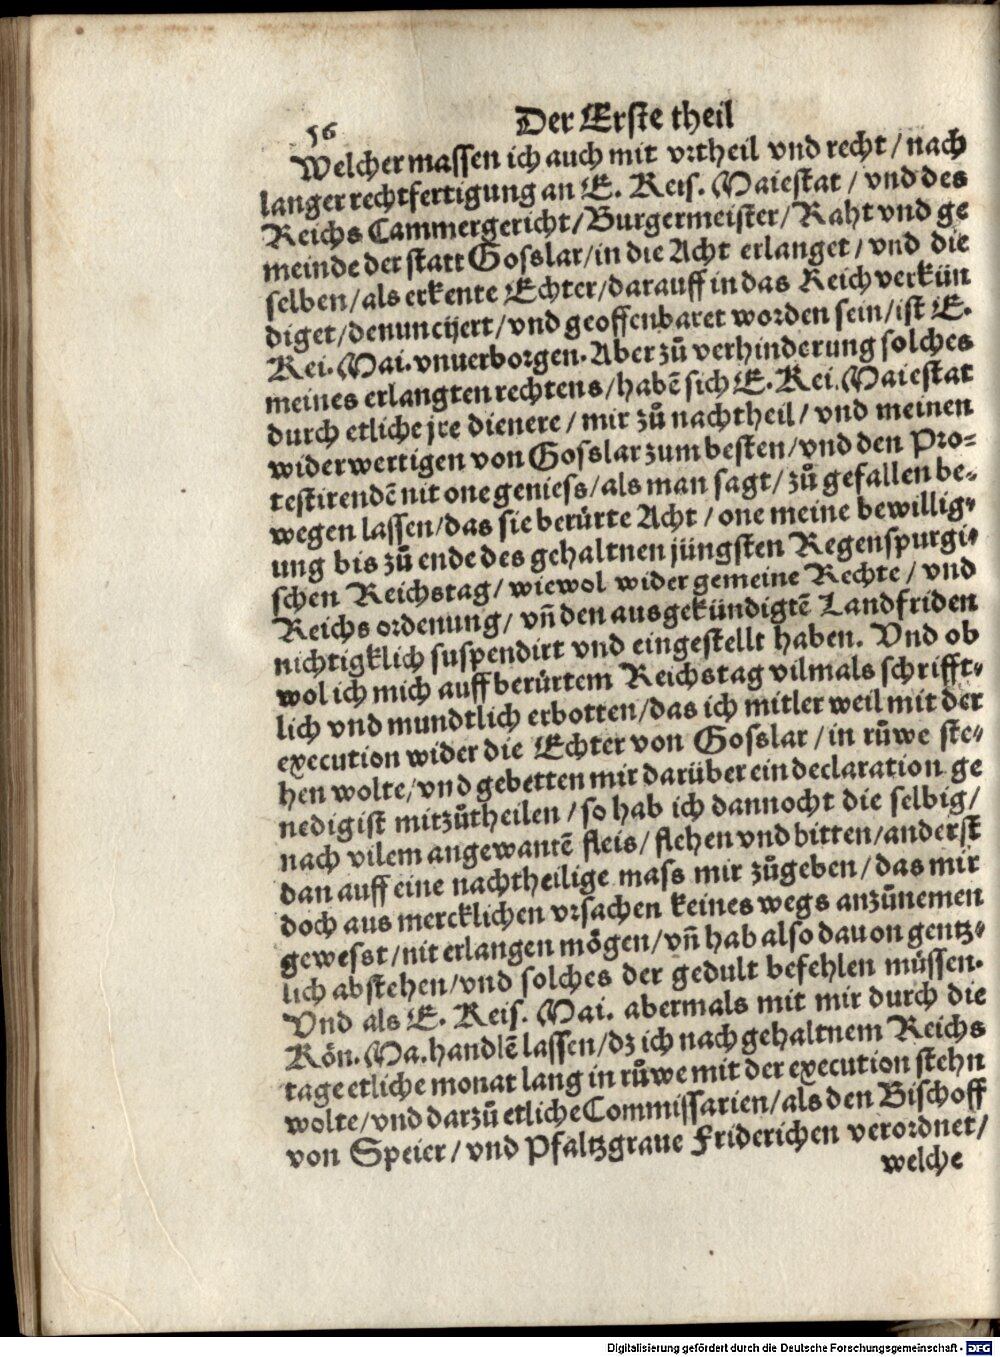 56
Der Erste theil
Welcher massen ich auch mit vrtheil vnd recht / nach
langer rechtfertigung an E. Keis. Maiestat / vnd des
Reichs Cammergericht/Burgermeister/Raht vnd ge
meinde der statt Gosslar/in die Acht erlanget/vnd die
selben/als erkente Echter/darauff in das Reich verkün
diget/denuncijert/vnd geoffenbaret worden sein/ist E.
Kei. Mai. vnuerborgen. Aber zů verhinderung solches
meines erlangten rechtens/habē sich E. Kei. Maiestat
durch etliche jre dienere / mir zů nachtheil / vnd meinen
widerwertigen von Gosslar zum besten/vnd den Pro=
testirendē nit one geniess/als man sagt/zů gefallen be=
wegen lassen/das sie berürte Acht / one meine bewillig=
ung bis zů ende des gehaltnen jüngsten Regenspurgi=
schen Reichstag/wiewol wider gemeine Rechte / vnd
Reichs ordenung/vñ den ausgekündigtē Landfriden
nichtigklich suspendirt vnd eingestellt haben. Vnd ob
wol ich mich auff berürtem Reichstag vilmals schrifft=
lich vnd mundtlich erbotten/das ich mitler weil mit der
execution wider die Echter von Gosslar/in růwe ste=
hen wolte/vnd gebetten mir darüber ein declaration ge
nedigist mitzůtheilen/so hab ich dannocht die selbig/
nach vilem angewantē fleis/flehen vnd bitten/anderst
dan auff eine nachtheilige mass mir zůgeben/das mir
doch aus mercklichen vrsachen keines wegs anzůnemen
gewesst/nit erlangen mögen/vñ hab also dauon gentz=
lich abstehen/vnd solches der gedult befehlen müssen.
Vnd als E. Keis. Mai. abermals mit mir durch die
Kön. Ma. handlē lassen/dz ich nach gehaltnem Reichs
tage etliche monat lang in růwe mit der execution stehn
wolte/vnd darzů etliche Commissarien/als den Bischoff
von Speier/vnd Pfaltzgraue Friderichen verordnet/
welche
Digitalisierung gefördert durch die Deutsche Forschungsgemeinschaft - DFG